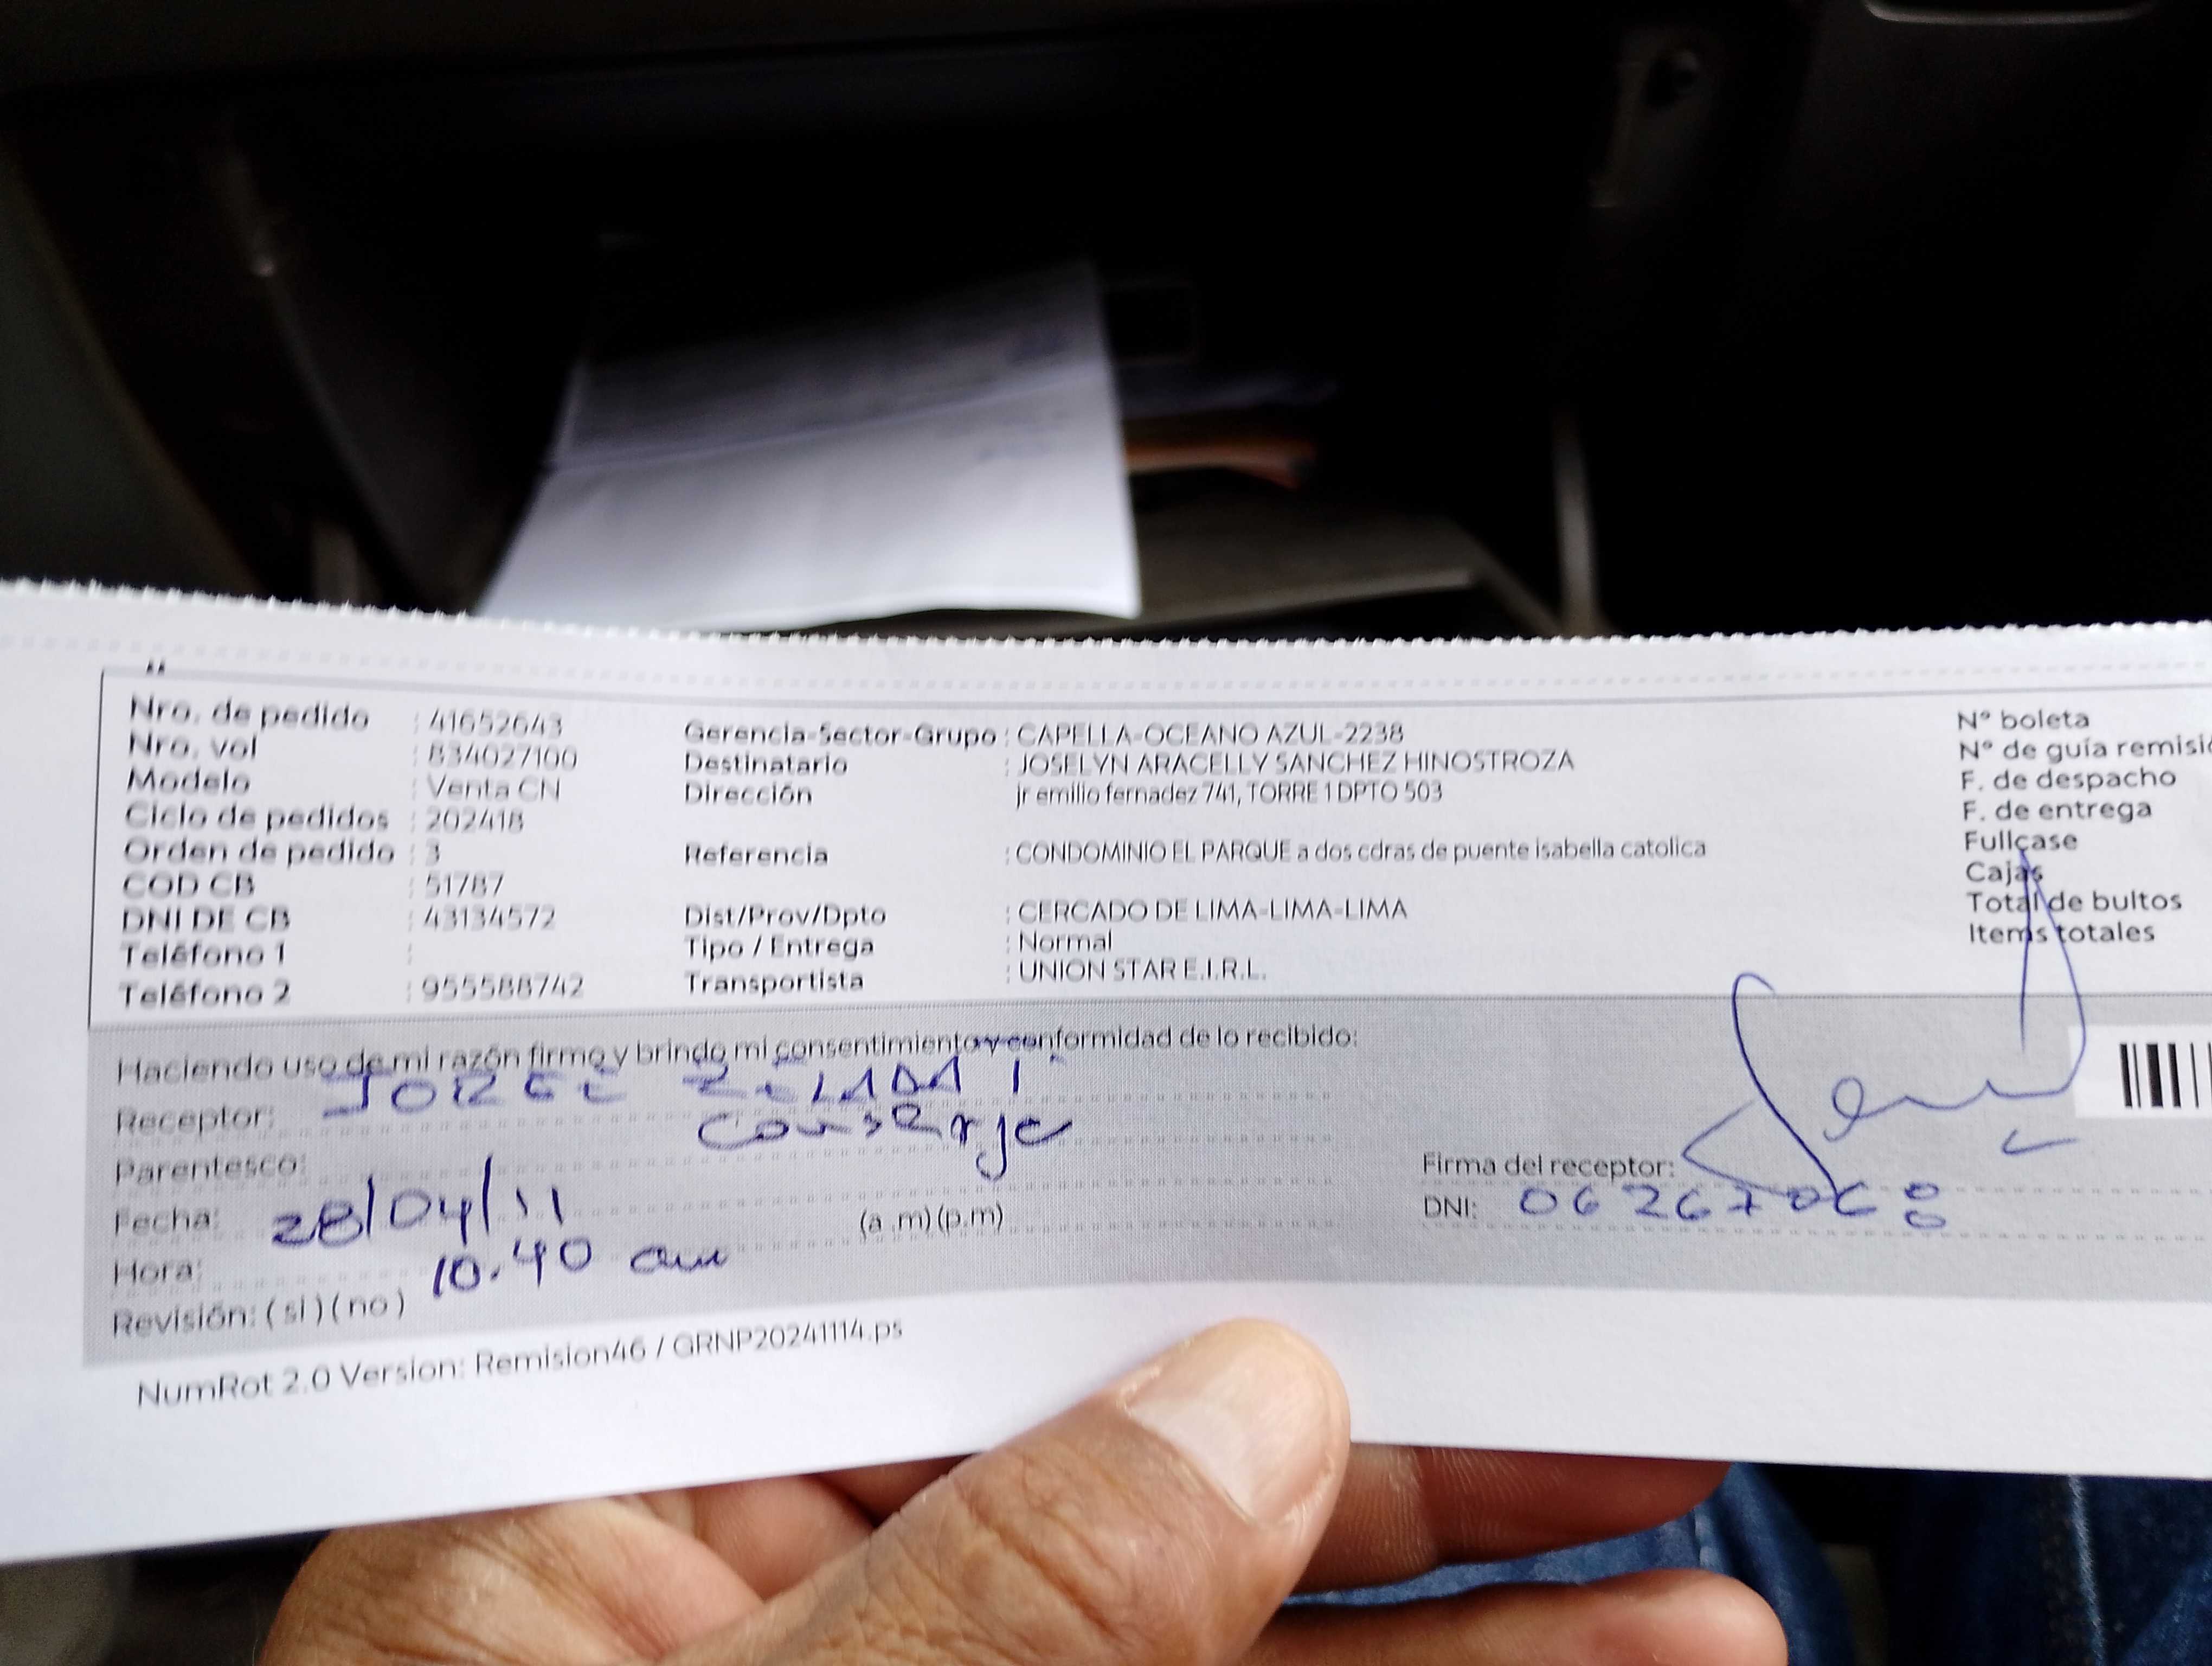 Nro. de pedido : 41652643
Nro. vol : 834027100
Modelo : Venta CN
Ciclo de pedidos : 202418
Orden de pedido : 3
COD CB : 51787
DNI DE CB : 43134572
Teléfono 1 :
Teléfono 2 : 955588742
Gerencia-Sector-Grupo : CAPELLA-OCEANO AZUL-2238
Destinatario : JOSELYN ARACELLY SANCHEZ HINOSTROZA
Dirección jr emilio fernadez 741, TORRE 1 DPTO 503
Referencia : CONDOMINIO EL PARQUE a dos cdras de puente isabella catolica
Dist/Prov/Dpto : CERCADO DE LIMA-LIMA-LIMA
Tipo / Entrega : Normal
Transportista : UNION STAR E.I.R.L.
N° boleta
N° de guía
F. de despacho
F. de entrega
Fullcase
Cajas
Total de bultos
Items totales
Haciendo uso de mi razón firmo y brindo mi consentimiento y conformidad de lo recibido:
Receptor:
Parentesco: conserje
Fecha: 28/04/11
Hora: 10.40 am (a .m)(p.m)
Revisión: (si)(no)
Firma del receptor:
DNI:
NumRot 2.0 Version: Remision46 / GRNP20241114.ps